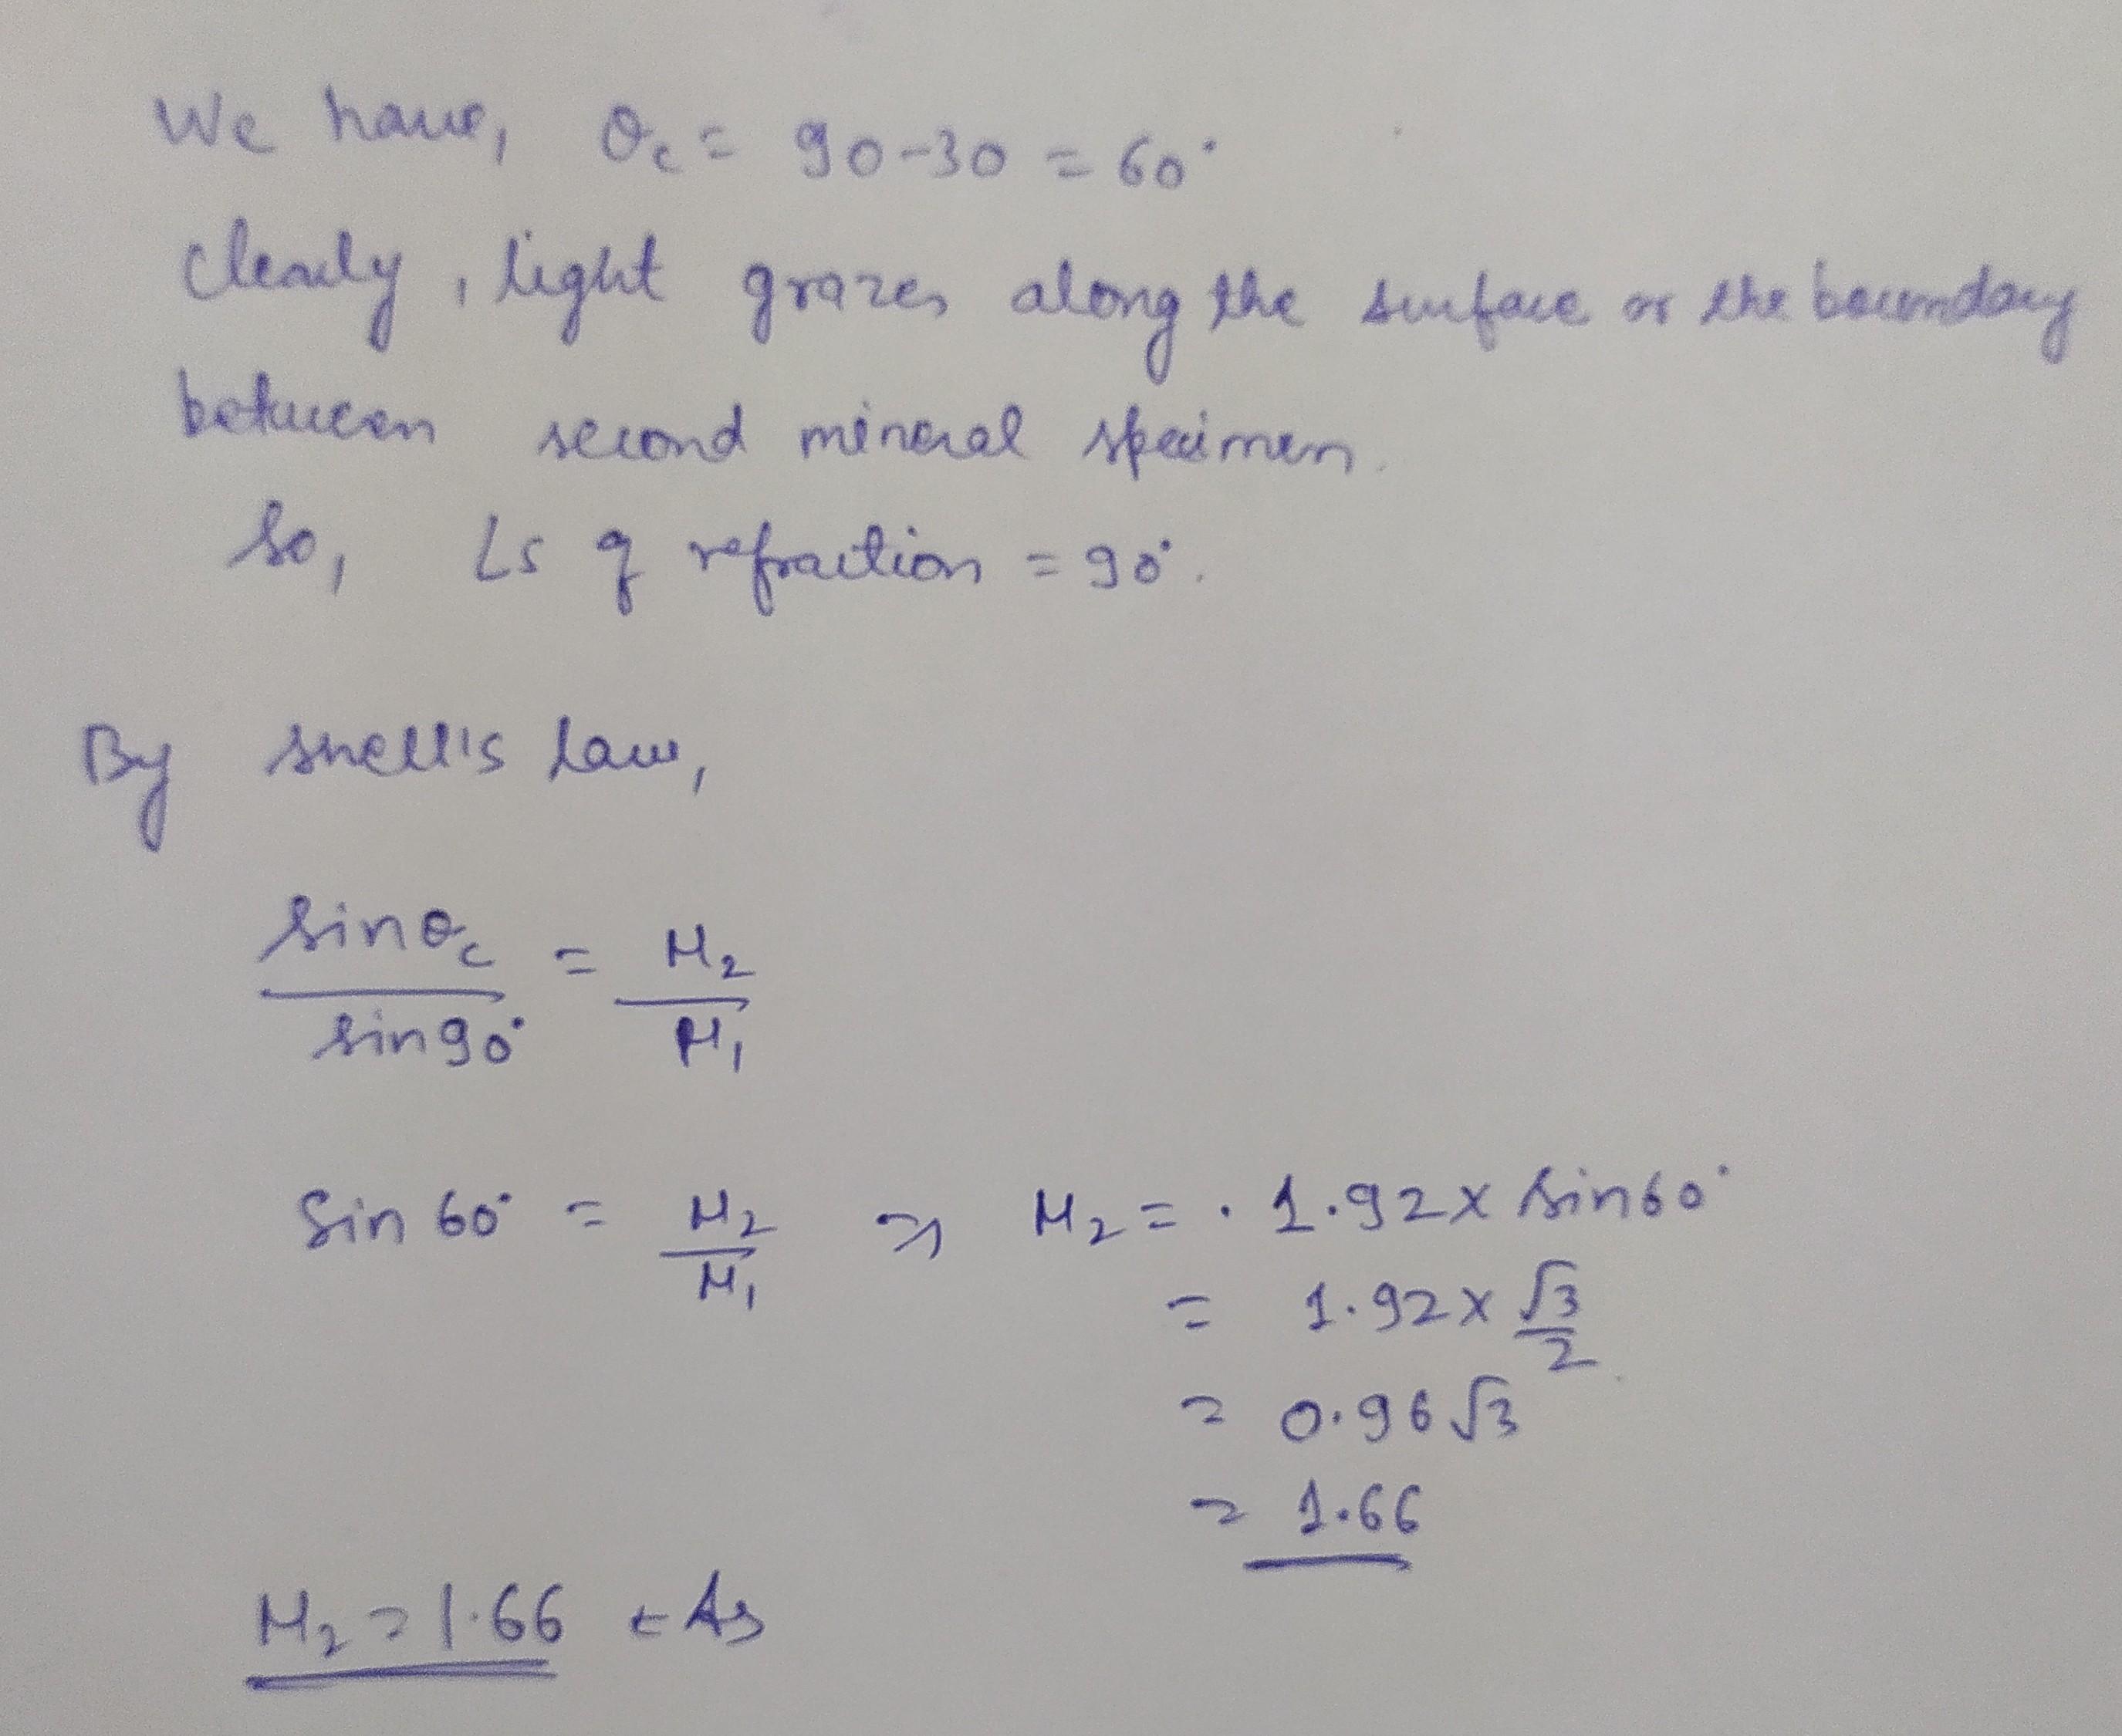 We have, θc = 90-30 = 60°
Clearly, light grazes along the surface or the boundary
between second mineral specimen.
So, Ls of refraction = 90°.
By snell's law,
sinθc / sin90° = μ2 / μ1
Sin 60° = μ2 / μ1 ⇒ μ2 = 1.92 x sin60°
= 1.92 x √3/2
= 0.96√3
= 1.66
μ2 = 1.66 ← As